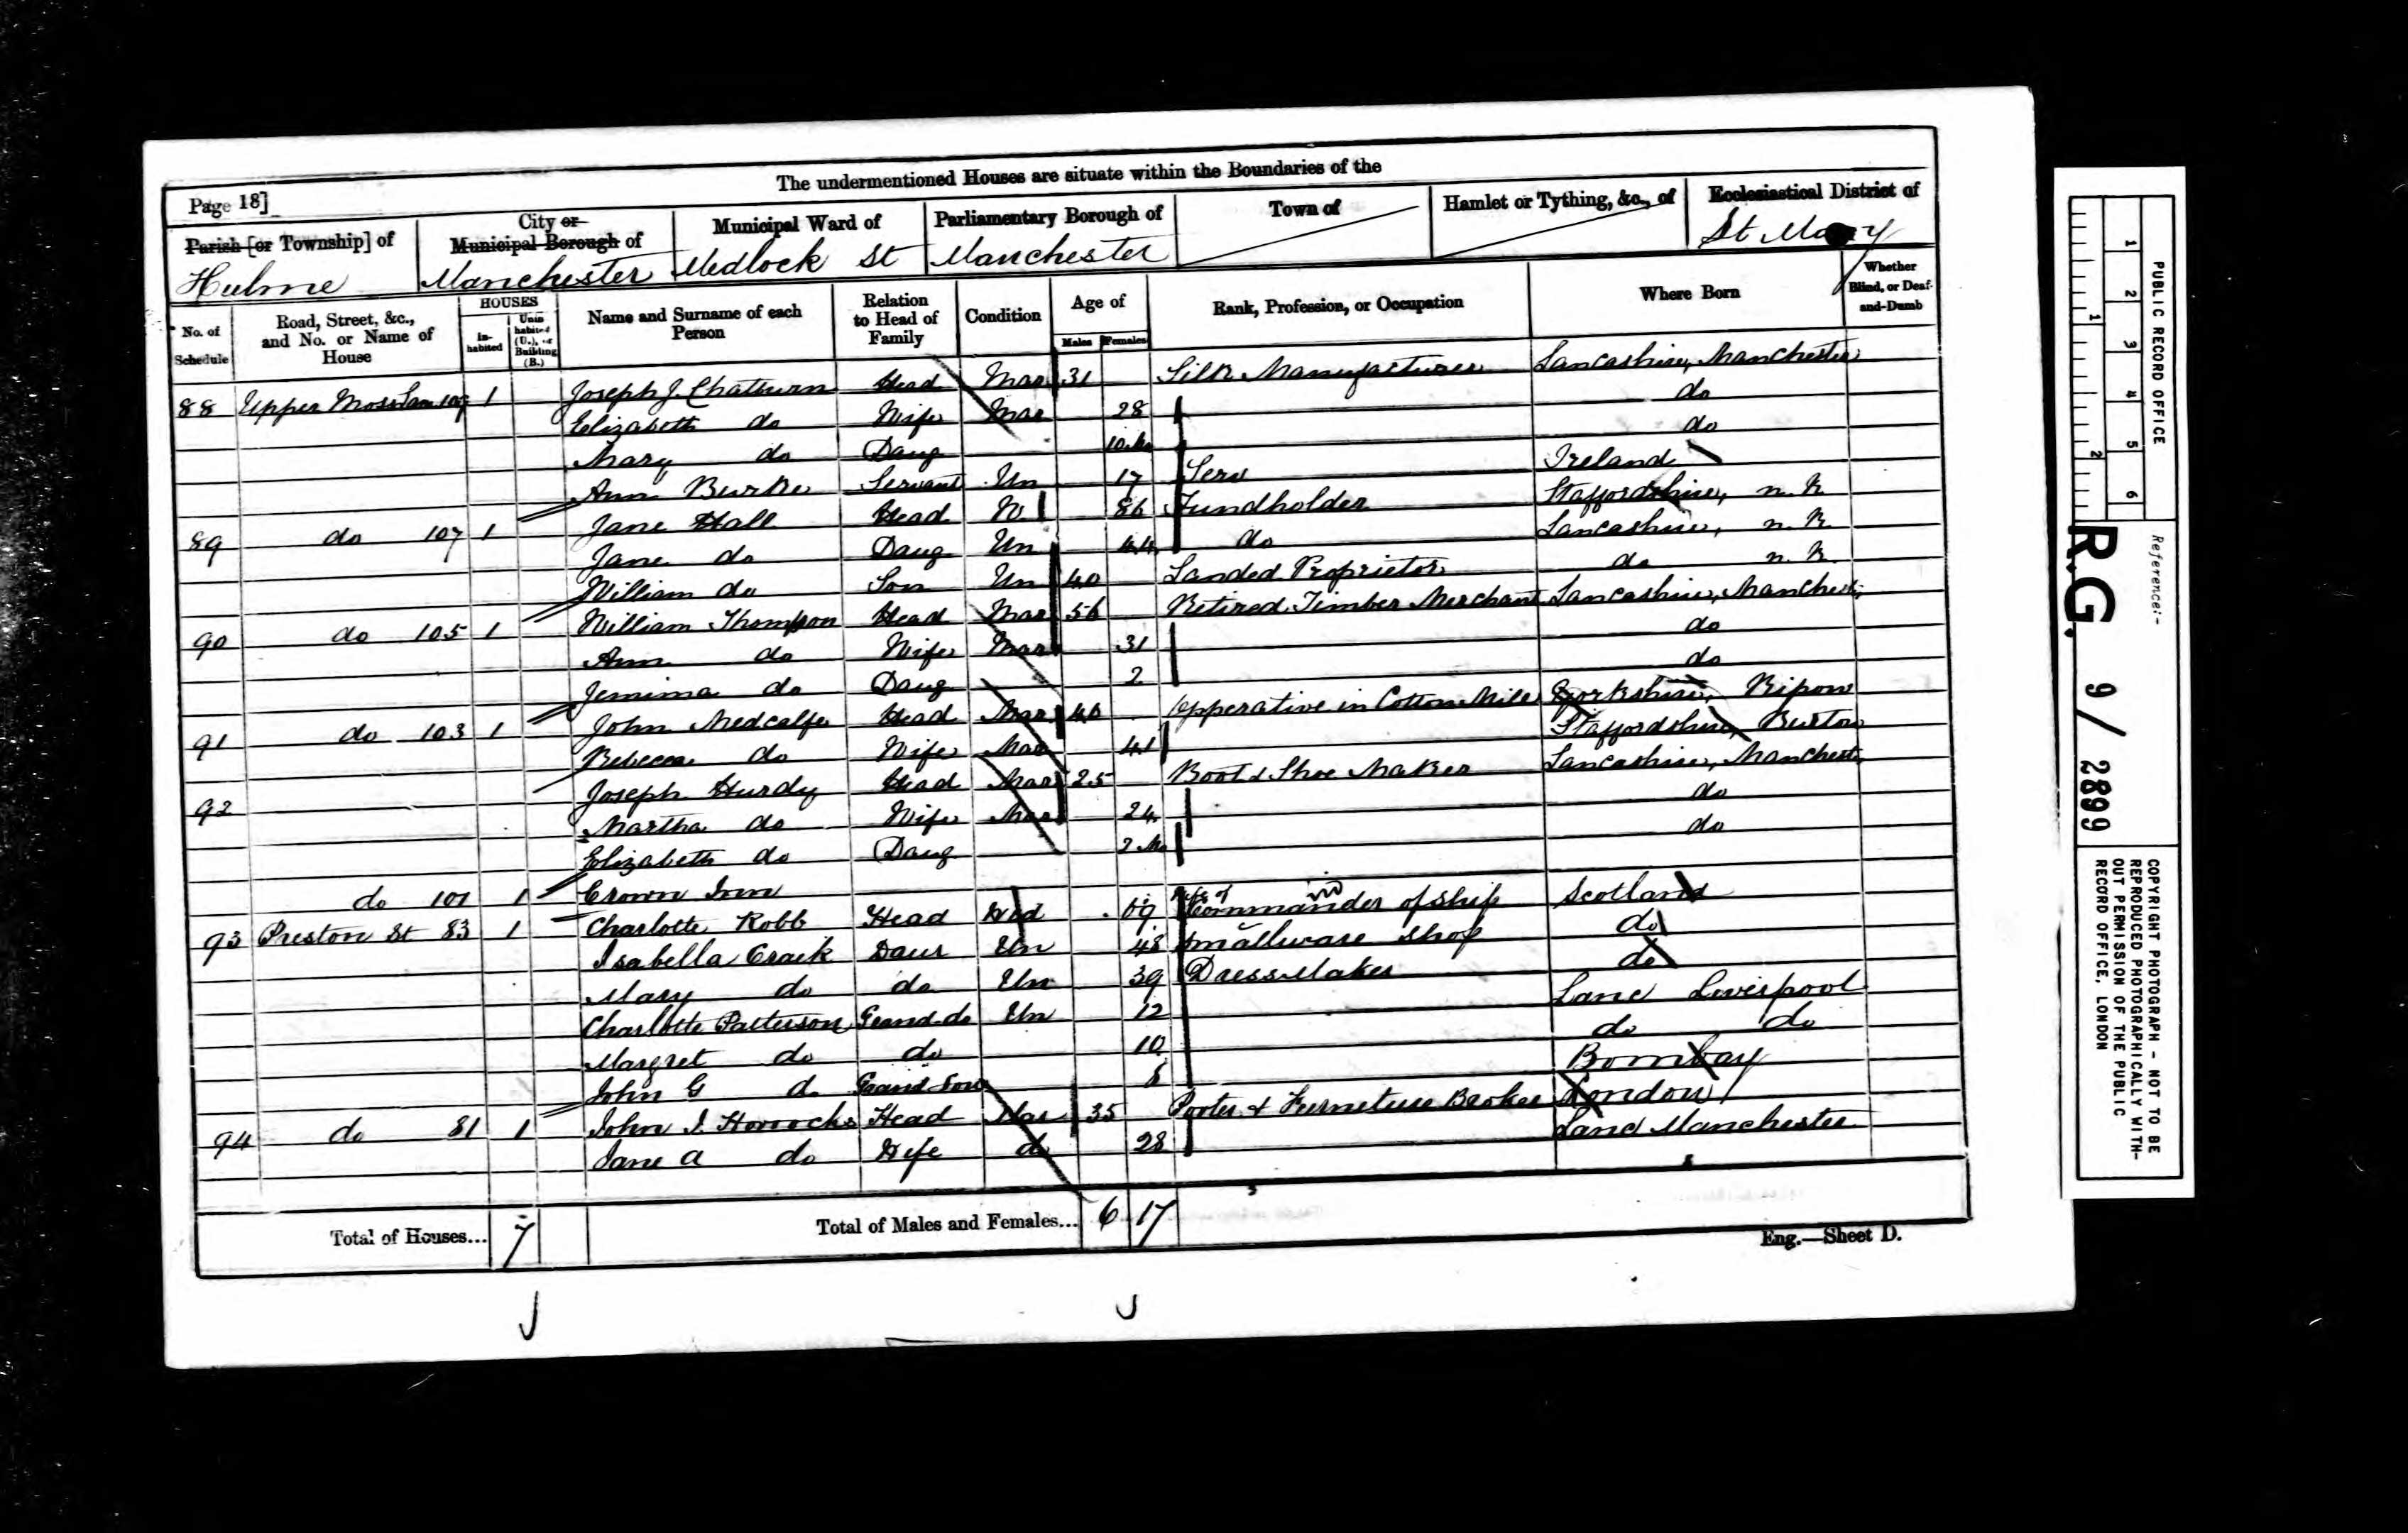 The undermentioned Houses are situate within the Boundaries of the
Page 18]
Parish [or Township] of
City or Municipal Borough of
Municipal Ward of
Parliamentary Borough of
Town of
Hamlet or Tything, &c., of
Ecclesiastical District of
Hulme
Manchester
Medlock St
Manchester
St Mary
No. of Schedule
Road, Street, &c., and No. or Name of House
HOUSES
In-habited
Unin habited (U.), or Building (B.)
Name and Surname of each Person
Relation to Head of Family
Condition
Age of
Males
Females
Rank, Profession, or Occupation
Where Born
Whether Blind, or Deaf-and-Dumb
88 Upper Moss Lane 109 1 Joseph J. Chatburn Head Mar 31 Silk Manufacturer Lancashire, Manchester
Elizabeth do Wife Mar 28 do
Mary do Daug 10 Mo do
Ann Burke Servant Un 17 Serv Ireland
89 do 107 1 Jane Hall Head W. 86 Fundholder Staffordshire, n. K
Jane do Daug Un 44 do Lancashire, n. K
William do Son Un 40 Landed Proprietor do n. K.
90 do 105 1 William Thompson Head Mar 56 Retired Timber Merchant Lancashire, Manchestr
Ann do Wife Mar 31 do
Jemima do Daug 2 do
91 do 103 1 John Medcalfe Head Mar 40 Opperative in Cotton Mill Yorkshire, Ripon
Rebecca do Wife Mar 41 Staffordshire, Burton
92 Joseph Hurdy Head Mar 25 Boot & Shoe Maker Lancashire, Manchestr
Martha do Wife Mar 24 do
Elizabeth do Daug 2 Mo do
do 101 1 Crown Inn
93 Preston St 83 1 Charlotte Robb Head Wid 69 Wife of Commander of Ship Scotland
Isabella Craik Daur Un 48 Smallware Shop do
Mary do do Un 39 Dress Maker do
Charlotte Patterson Grand do Un 12 Lanc Liverpool
Margret do do 10 do do
John G do Grand Son 8 Bombay
94 do 81 1 John I. Horrocks Head Mar 35 Porter & Furneture Broker London
Jane A do Wife do 28 Lanc Manchester
Total of Houses... 7
Total of Males and Females... 6 17
Eng.—Sheet D.
PUBLIC RECORD OFFICE
1 2 3 4 5 6
1 2
Reference:-
R.G. 9/ 2899
COPYRIGHT PHOTOGRAPH - NOT TO BE
REPRODUCED PHOTOGRAPHICALLY WITH-
OUT PERMISSION OF THE PUBLIC
RECORD OFFICE, LONDON